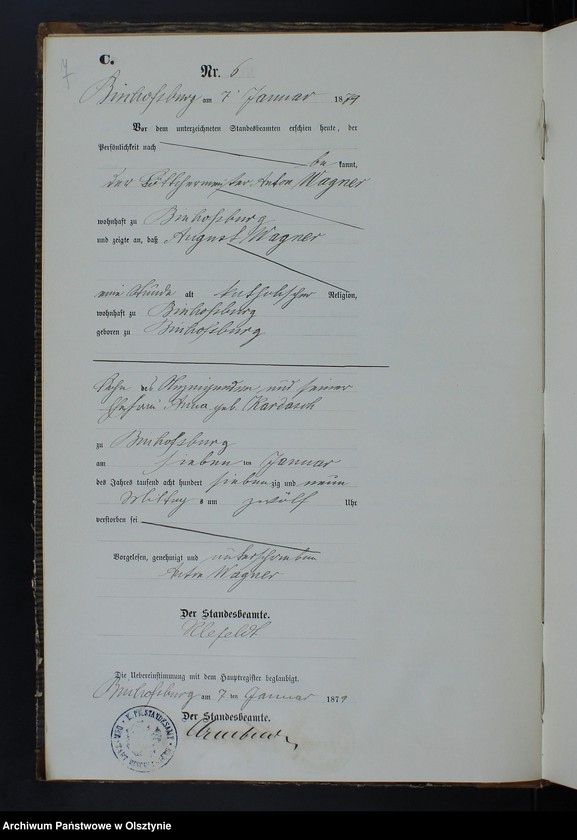 7
C.
Nr. 6
Bischofsburg am 7 Januar 1879
Vor dem unterzeichneten Standesbeamten erschien heute, der
Persönlichkeit nach
be kannt,
der Böttchermeister Anton Wagner
wohnhaft zu Bischofsburg
und zeigte an, daß August Wagner
eine Stunde alt katholischer Religion,
wohnhaft zu Bischofsburg
geboren zu Bischofsburg
Sohn des Anzeigenden und seiner
Ehefrau Anna geb. Kardasch
zu Bischofsburg
am sieben ten Januar
des Jahres tausend acht hundert sieben zig und neun
Mittag s um zwölf Uhr
verstorben sei
Vorgelesen, genehmigt und unterschrieben
Anton Wagner
Der Standesbeamte.
Klefeldt
Die Uebereinstimmung mit dem Hauptregister beglaubigt.
Bischofsburg am 7 ten Januar 1879
Der Standesbeamte.
K. PR. STANDESAMT
Archiwum Państwowe w Olsztynie